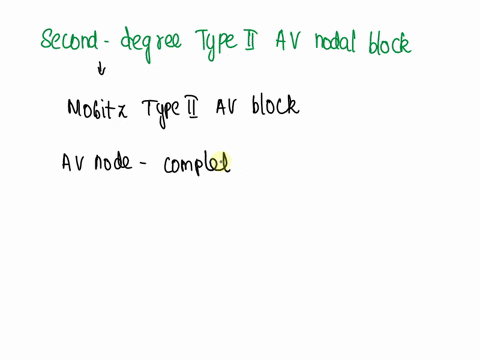 Second - degree Type II AV nodal block
↓
Mobitz Type II AV block
AV node - complet